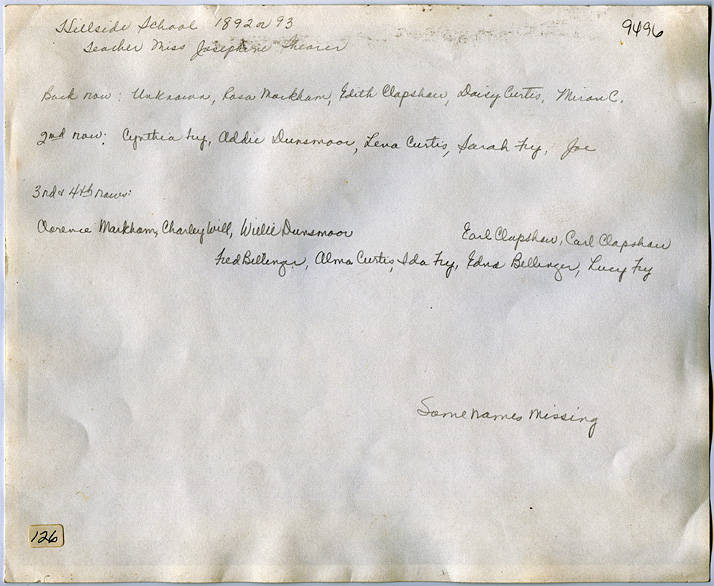 Hillside School 1892 or 93
9496
Teacher Miss Josephine Shearer
Back row: Unknown, Rosa Markham, Edith Clapshaw, Daisy Curtis, Miron C.
2nd row: Cynthia Fry, Addie Dunsmoor, Lena Curtis, Sarah Fry, Joe
3rd & 4th rows:
Clarence Markham, Charley Will, Willie Dunsmoor Earl Clapshaw, Carl Clapshaw
Fred Bellinger, Alma Curtis, Ida Fry, Edna Bellinger, Lucy Fry
Some names missing
126